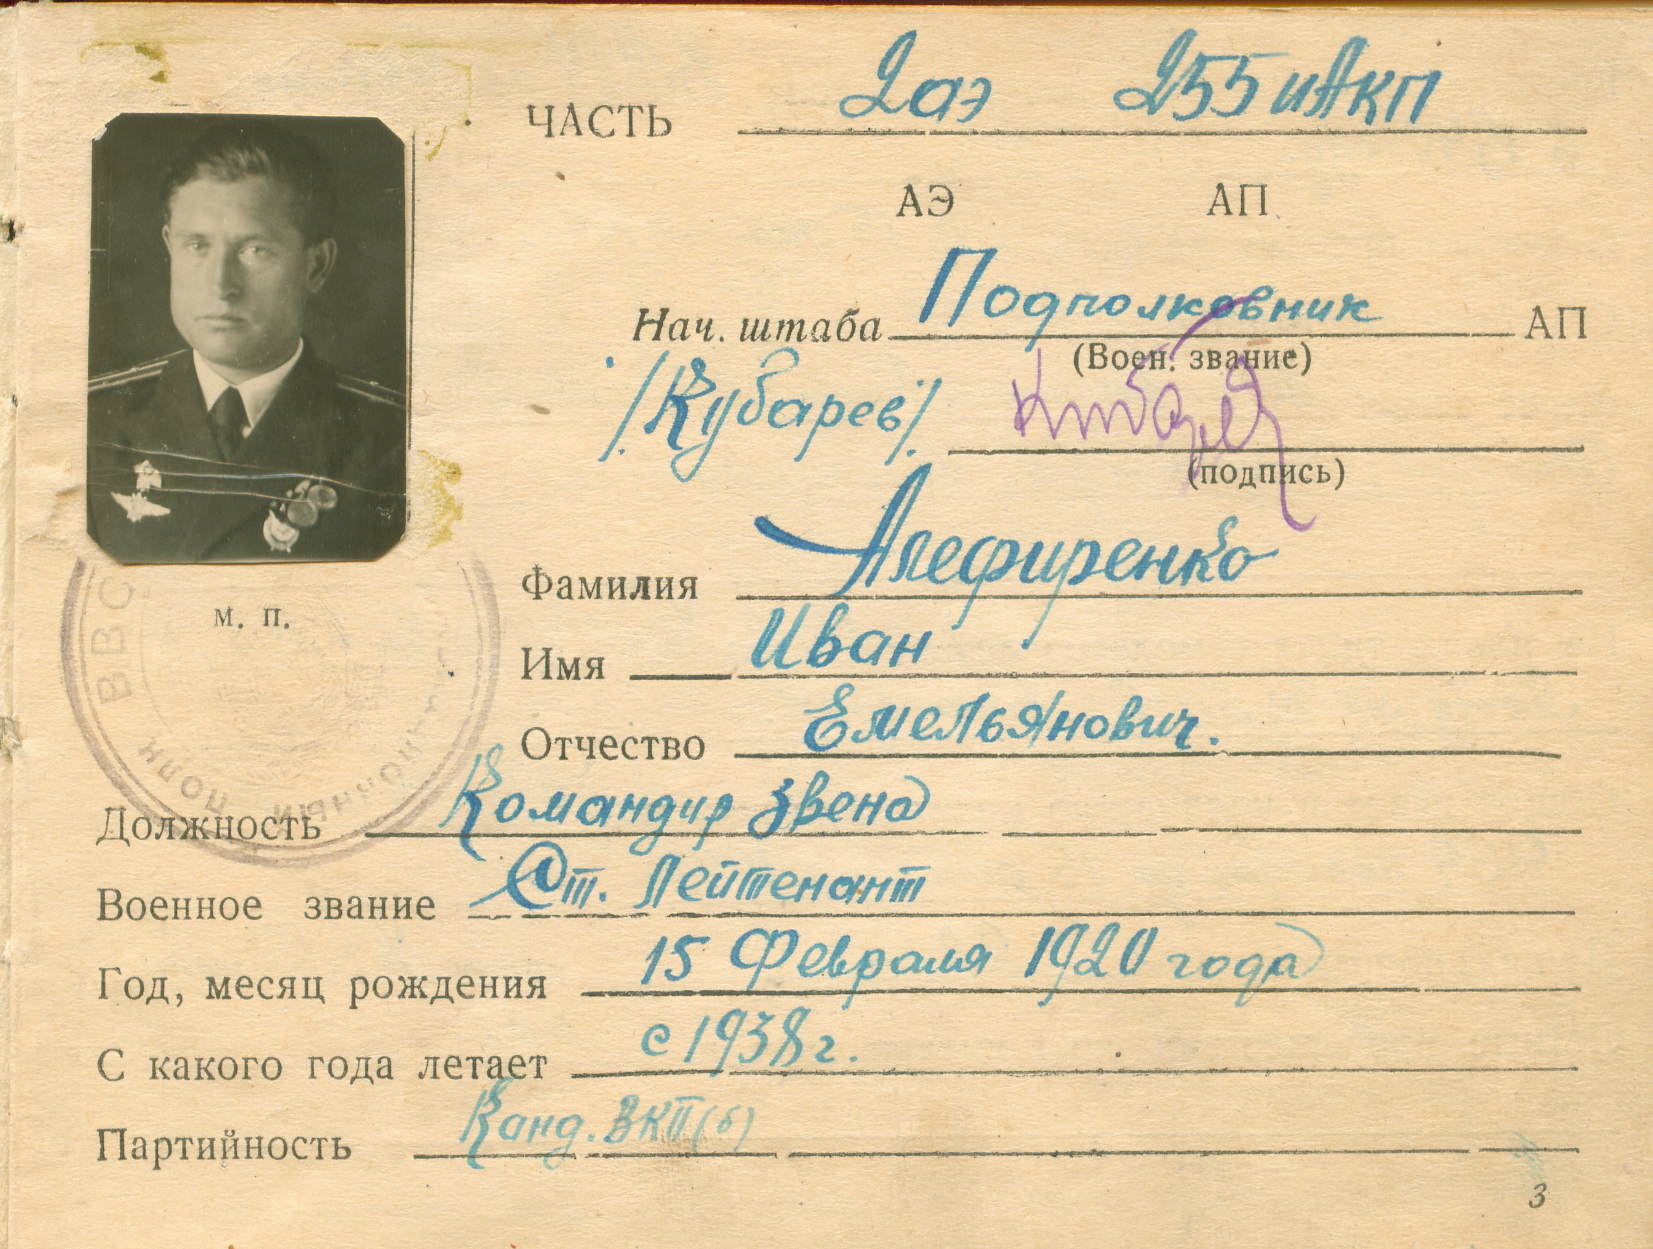 ЧАСТЬ 2аэ 255 иАКП
АЭ АП
Нач. штаба Подполковник АП
(Воен. звание)
/Кубарев/.
(подпись)
Фамилия Алефиренко
м. п.
Имя Иван
Отчество Емельянович.
Должность Командир звена
Военное звание Ст. Лейтенант
Год, месяц рождения 15 Февраля 1920 года
С какого года летает с 1938 г.
Партийность Канд. ВКП(б)
ВВС
3